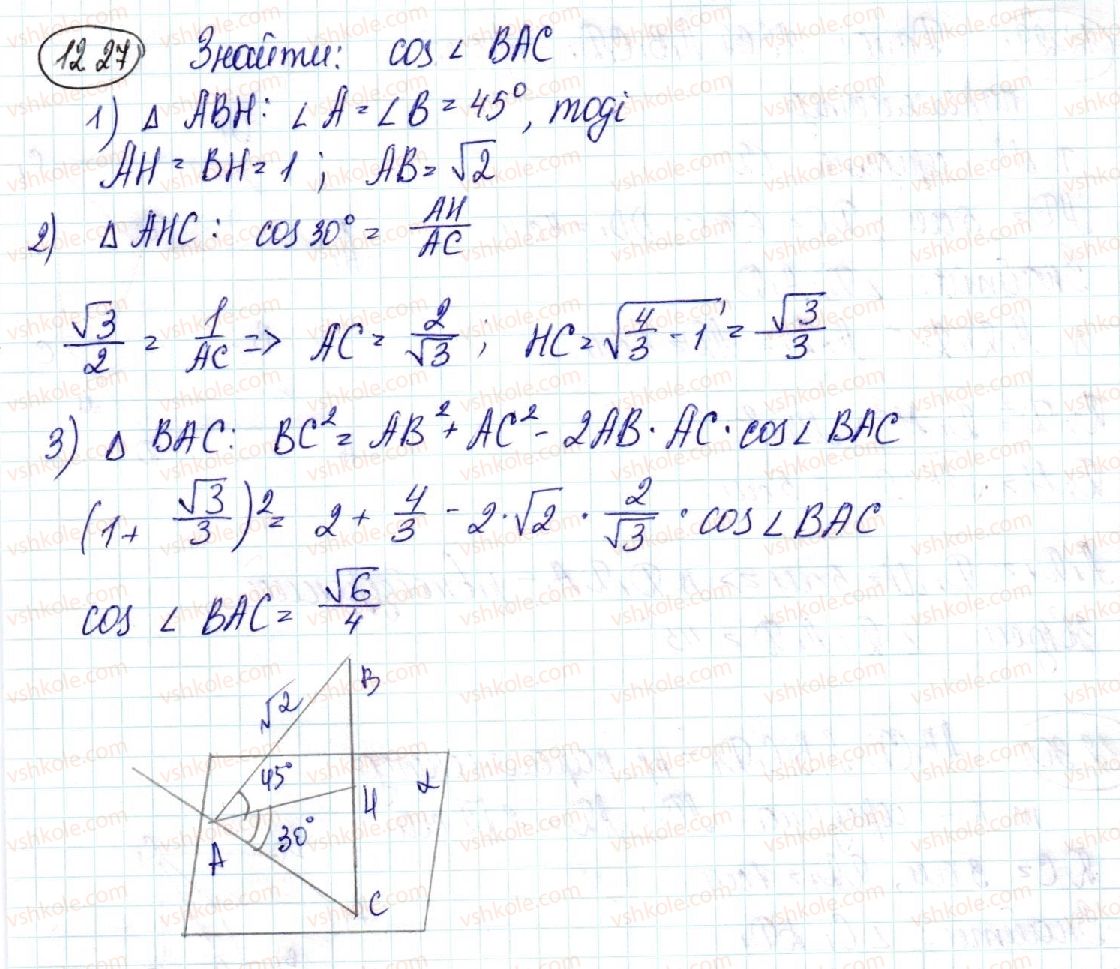 12 27 Знайти: cos ∠ BAC
1) Δ ABH: ∠A = ∠B = 45°, тоді
AH = BH = 1 ; AB = √2
2) Δ AHC: cos 30° = AH/AC
√3/2 = 1/AC => AC = 2/√3 ; HC = √(4/3 - 1) = √3/3
3) Δ BAC: BC² = AB² + AC² - 2AB · AC · cos∠BAC
(1 + √3/3)² = 2 + 4/3 - 2·√2 · 2/√3 · cos∠BAC
cos ∠ BAC = √6/4
B
√2
45°
H
α
30°
A
C
vshkole.com